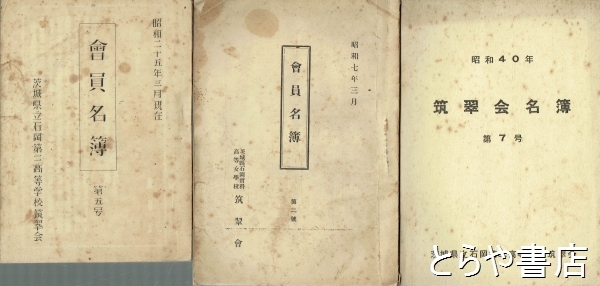 昭和二十五年三月現在
會員名簿
第五号
茨城県立石岡第二高等学校筑翠会
昭和七年三月
會員名簿
第二號
茨城縣石岡實科
高等女學校
筑翠會
昭和40年
筑翠会名簿
第7号
茨城県立石岡
とらや書店